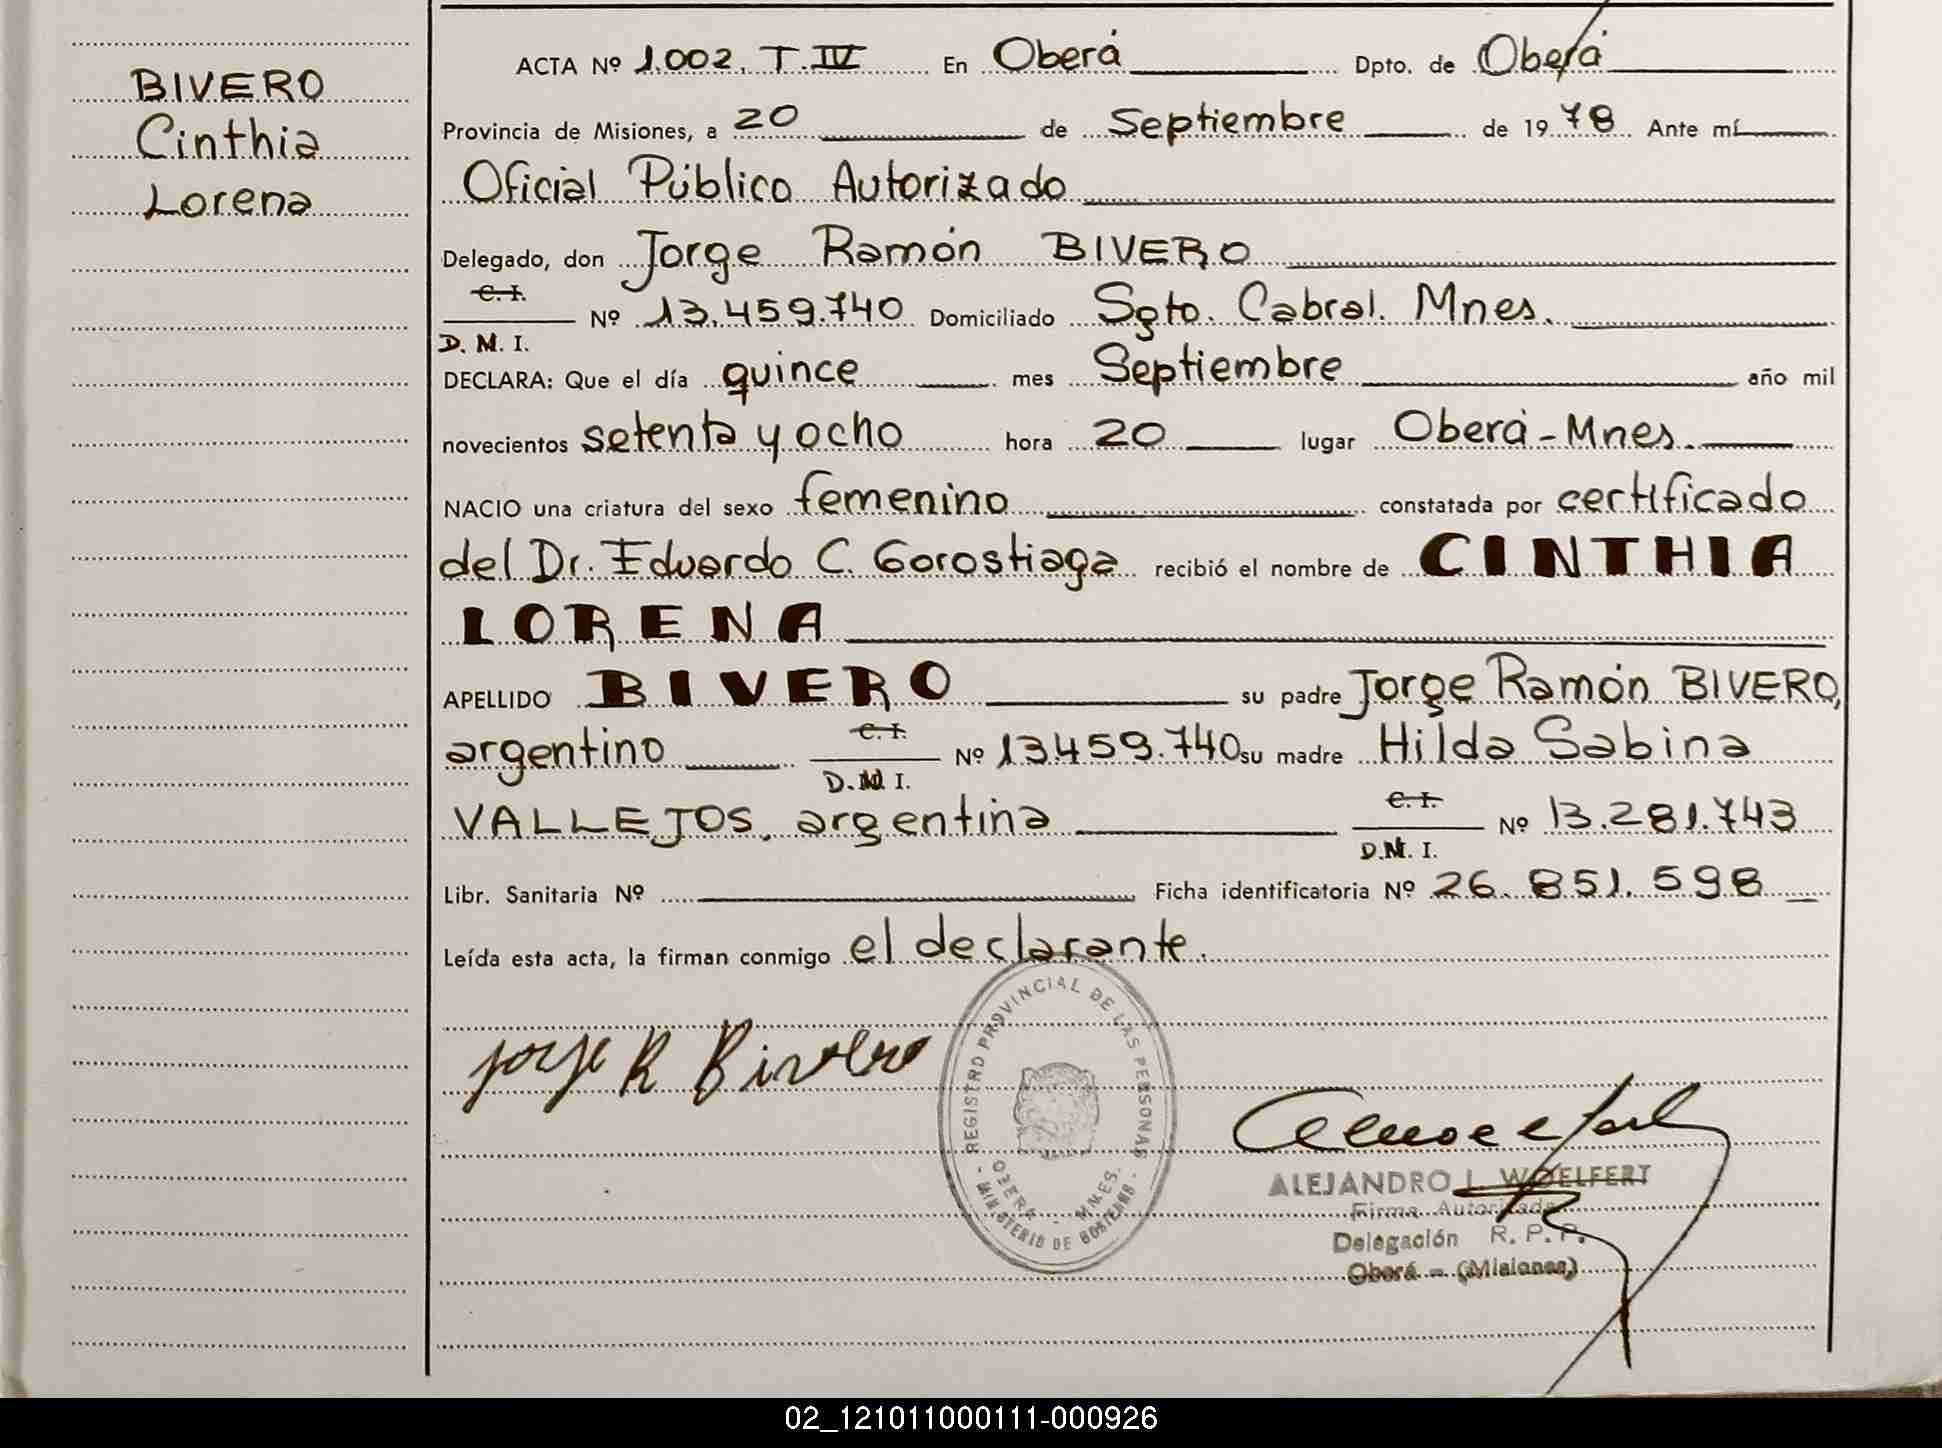 BIVERO
Cinthia
Lorena
ACTA Nº 1.002. T. IV En Oberá Dpto. de Oberá
Provincia de Misiones, a 20 de Septiembre de 1978 Ante mí
Oficial Público Autorizado
Delegado, don Jorge Ramón BIVERO
C. I.
Nº 13.459.740 Domiciliado Sgto. Cabral. Mnes.
D. M. I.
DECLARA: Que el día quince mes Septiembre año mil
novecientos setenta y ocho hora 20 lugar Oberá - Mnes.
NACIO una criatura del sexo femenino constatada por certificado
del Dr. Eduardo C. Gorostiaga recibió el nombre de CINTHIA
LORENA
APELLIDO BIVERO su padre Jorge Ramón BIVERO,
argentino C. I. D. M. I. Nº 13.459.740 su madre Hilda Sabina
VALLEJOS, argentina C. I. D. M. I. Nº 13.281.743
Libr. Sanitaria Nº Ficha identificatoria Nº 26.851.598
Leída esta acta, la firman conmigo el declarante.
Jorge R Bivero
REGISTRO PROVINCIAL DE LAS PERSONAS
OBERA - MNES.
MINISTERIO DE GOBIERNO
ALEJANDRO L. WOELFERT
Firma Autorizada
Delegación R. P. P.
Oberá - (Misiones)
02_121011000111-000926